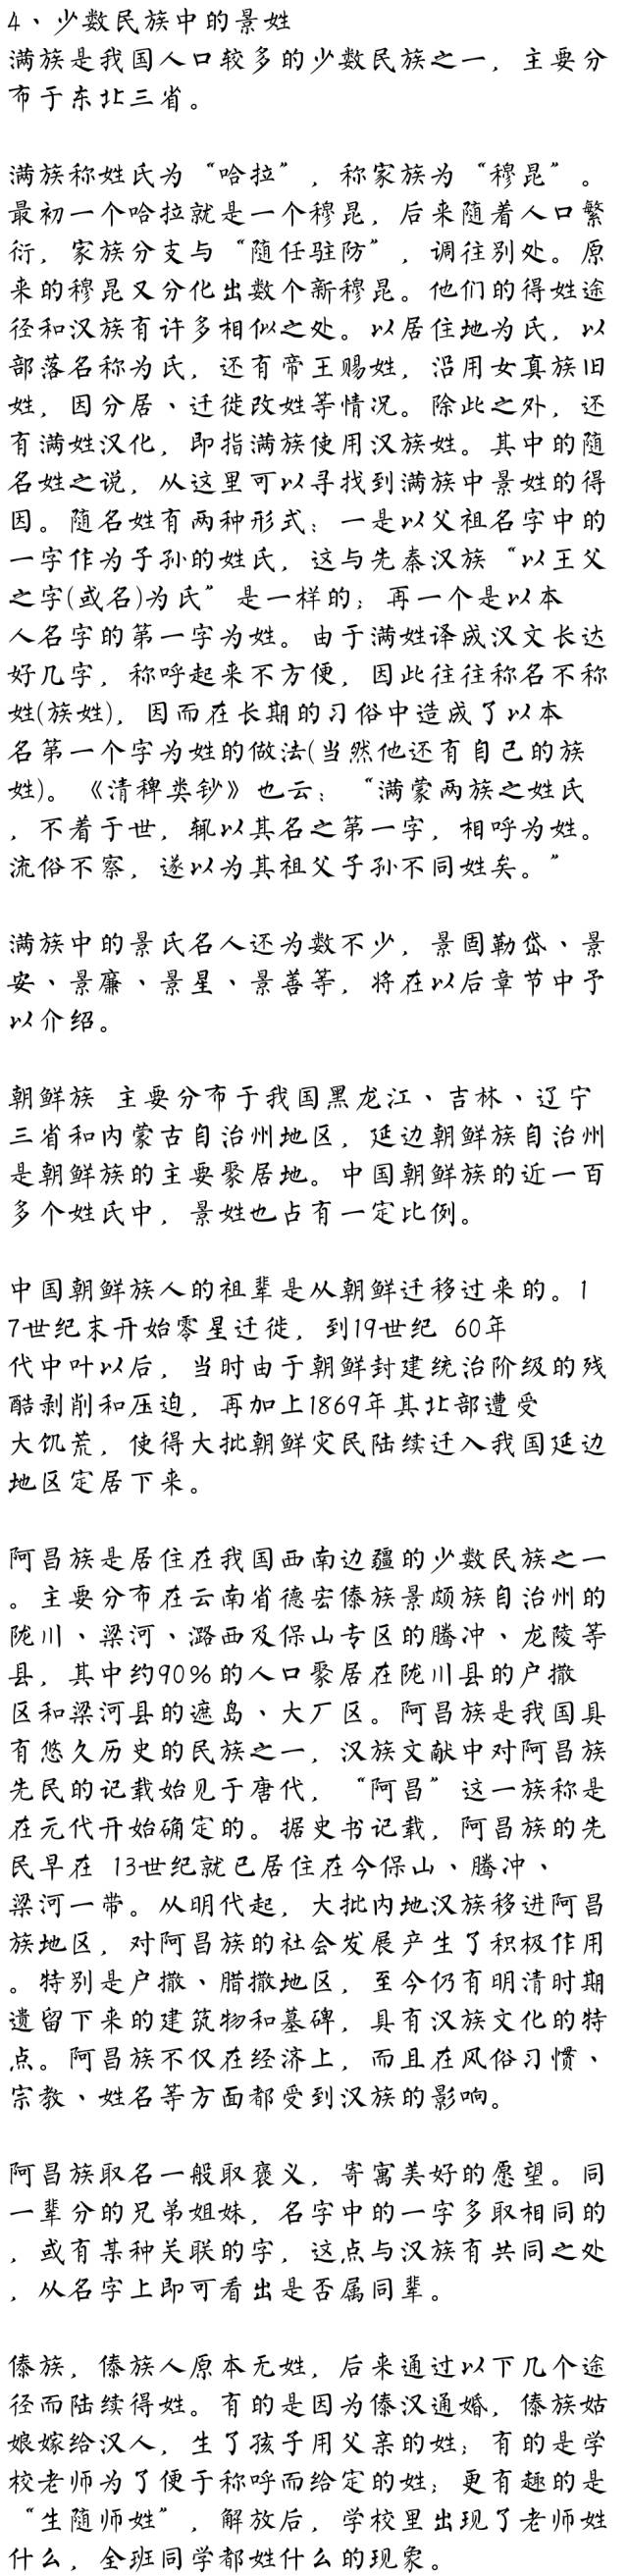 4、少数民族中的景姓
满族是我国人口较多的少数民族之一，主要分
布于东北三省。
满族称姓氏为“哈拉”，称家族为“穆昆”。
最初一个哈拉就是一个穆昆，后来随着人口繁
衍，家族分支与“随任驻防”，调往别处。原
来的穆昆又分化出数个新穆昆。他们的得姓途
径和汉族有许多相似之处。以居住地为氏，以
部落名称为氏，还有帝王赐姓，沿用女真族旧
姓，因分居、迁徙改姓等情况。除此之外，还
有满姓汉化，即指满族使用汉族姓。其中的随
名姓之说，从这里可以寻找到满族中景姓的得
因。随名姓有两种形式：一是以父祖名字中的
一字作为子孙的姓氏，这与先秦汉族“以王父
之字(或名)为氏”是一样的；再一个是以本
人名字的第一字为姓。由于满姓译成汉文长达
好几字，称呼起来不方便，因此往往称名不称
姓(族姓)，因而在长期的习俗中造成了以本
名第一个字为姓的做法(当然他还有自己的族
姓)。《清稗类钞》也云：“满蒙两族之姓氏
，不着于世，辄以其名之第一字，相呼为姓。
流俗不察，遂以为其祖父子孙不同姓矣。”
满族中的景氏名人还为数不少，景固勒岱、景
安、景廉、景星、景善等，将在以后章节中予
以介绍。
朝鲜族 主要分布于我国黑龙江、吉林、辽宁
三省和内蒙古自治州地区，延边朝鲜族自治州
是朝鲜族的主要聚居地。中国朝鲜族的近一百
多个姓氏中，景姓也占有一定比例。
中国朝鲜族人的祖辈是从朝鲜迁移过来的。1
7世纪末开始零星迁徙，到19世纪 60年
代中叶以后，当时由于朝鲜封建统治阶级的残
酷剥削和压迫，再加上1869年其北部遭受
大饥荒，使得大批朝鲜灾民陆续迁入我国延边
地区定居下来。
阿昌族是居住在我国西南边疆的少数民族之一
。主要分布在云南省德宏傣族景颇族自治州的
陇川、梁河、潞西及保山专区的腾冲、龙陵等
县，其中约90%的人口聚居在陇川县的户撒
区和梁河县的遮岛、大厂区。阿昌族是我国具
有悠久历史的民族之一，汉族文献中对阿昌族
先民的记载始见于唐代，“阿昌”这一族称是
在元代开始确定的。据史书记载，阿昌族的先
民早在 13世纪就已居住在今保山、腾冲、
梁河一带。从明代起，大批内地汉族移进阿昌
族地区，对阿昌族的社会发展产生了积极作用
。特别是户撒、腊撒地区，至今仍有明清时期
遗留下来的建筑物和墓碑，具有汉族文化的特
点。阿昌族不仅在经济上，而且在风俗习惯、
宗教、姓名等方面都受到汉族的影响。
阿昌族取名一般取褒义，寄寓美好的愿望。同
一辈分的兄弟姐妹，名字中的一字多取相同的
，或有某种关联的字，这点与汉族有共同之处
，从名字上即可看出是否属同辈。
傣族，傣族人原本无姓，后来通过以下几个途
径而陆续得姓。有的是因为傣汉通婚，傣族姑
娘嫁给汉人，生了孩子用父亲的姓；有的是学
校老师为了便于称呼而给定的姓；更有趣的是
“生随师姓”，解放后，学校里出现了老师姓
什么，全班同学都姓什么的现象。